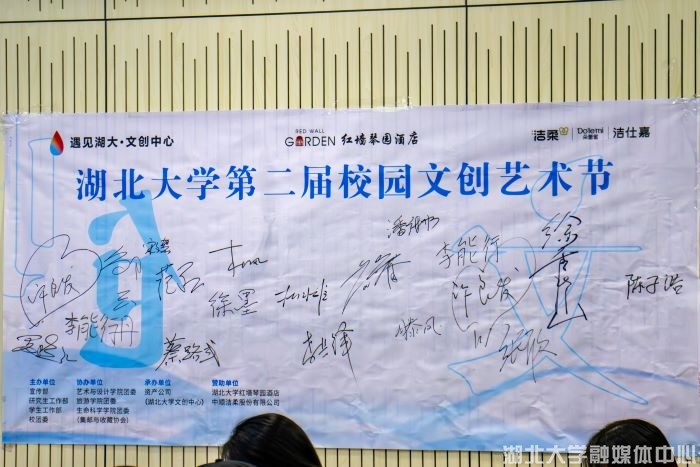 遇见湖大·文创中心
RED WALL
GARDEN 红墙琴园酒店
洁柔 Dolemi 朵蕾蜜 洁仕嘉
湖北大学第二届校园文创艺术节
李能行
许良发
陈子浩
徐墨
李能行
蔡路
主办单位 协办单位 承办单位 赞助单位
宣传部 艺术与设计学院团委 资产公司 湖北大学红墙琴园酒店
研究生工作部 旅游学院团委 (湖北大学文创中心) 中顺洁柔股份有限公司
学生工作部 生命科学学院团委
校团委 (集邮与收藏协会)
湖北大学融媒体中心